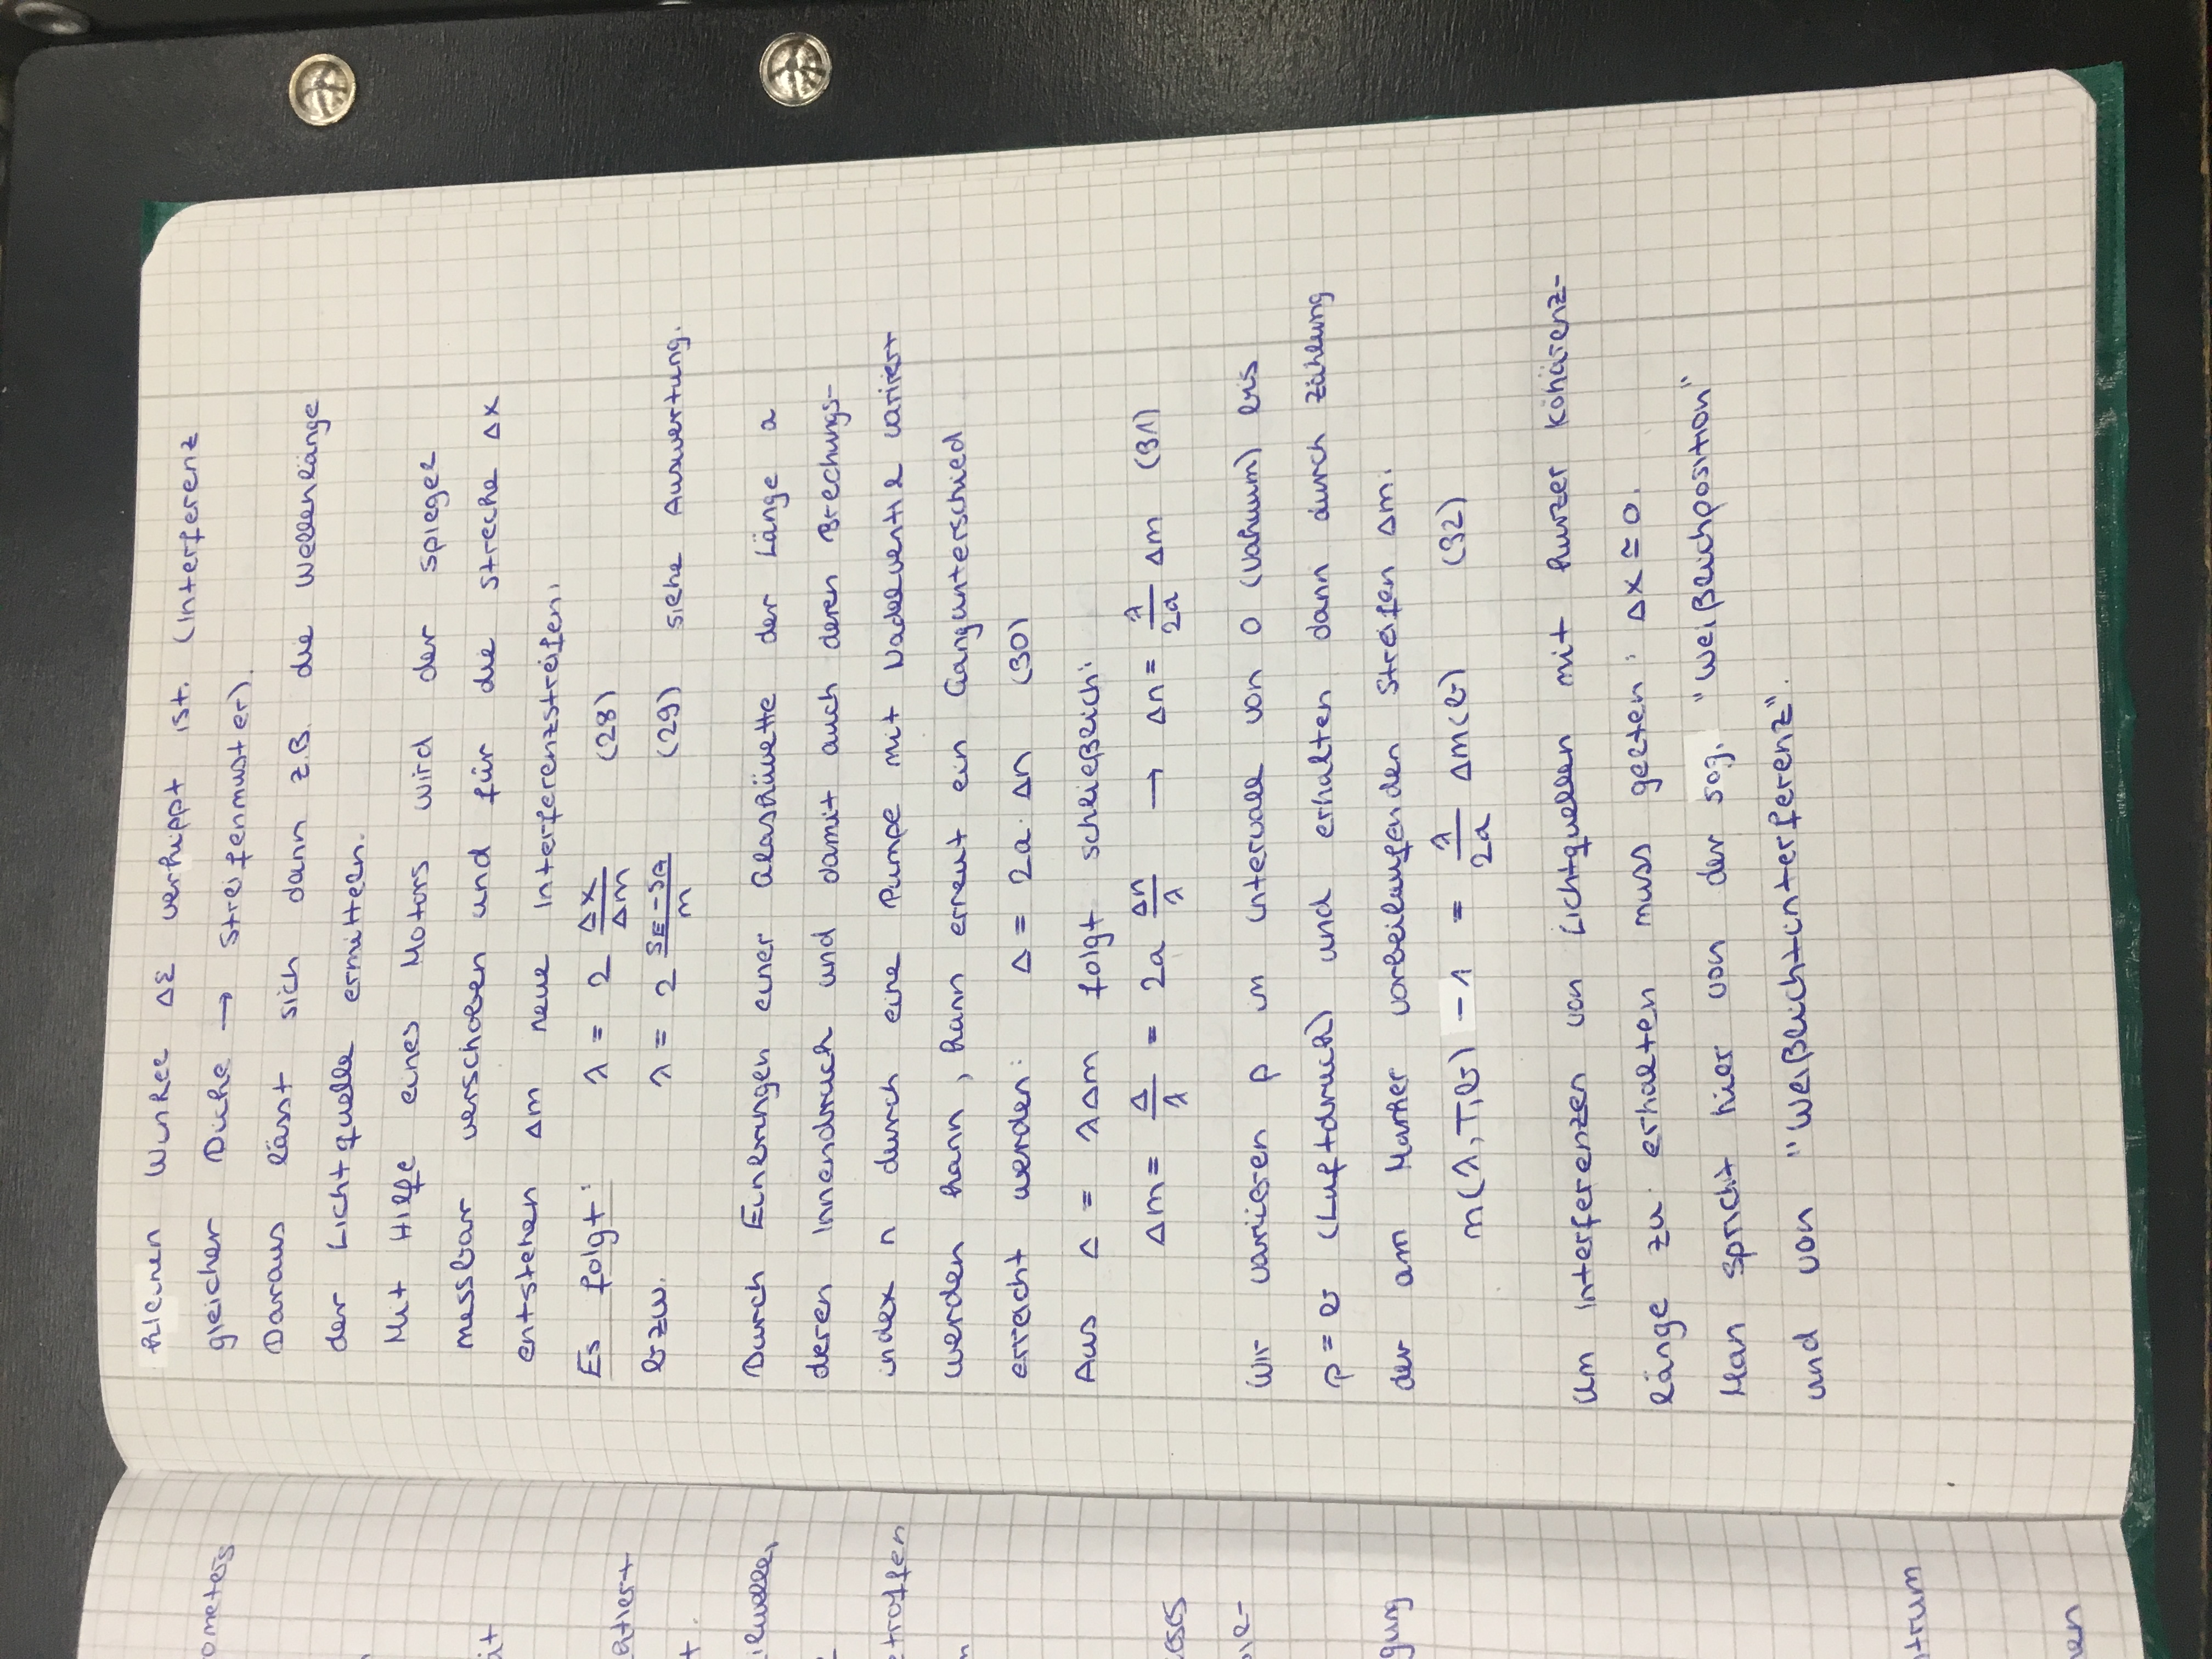 ometers
ät
atiert
t.
ilwellen
etroffen
n
eses
gung
trum
nen
kleinen Winkel Δε verkippt ist. (Interferenz
gleicher Dicke → Streifenmuster).
Daraus lässt sich dann z.B. die Wellenlänge
der Lichtquelle ermitteln.
Mit Hilfe eines Motors wird der Spiegel
messbar verschoben und für die Strecke Δx
entstehen Δm neue Interferenzstreifen.
Es folgt: λ = 2 Δx/Δm (28)
bzw. λ = 2 (S_E - S_A)/m (29) siehe Auswertung.
Durch Einbringen einer Glasküvette der Länge a
deren Innendruck und damit auch deren Brechungs-
index n durch eine Pumpe mit Nadelventil variiert
werden kann, kann erneut ein Gangunterschied
erreicht werden: Δ = 2a · Δn (30)
Aus Δ = λΔm folgt schließlich:
Δm = Δ/λ = 2a Δn/λ → Δn = λ/2a Δm (31)
Wir variieren p im Intervall von 0 (Vakuum) bis
p = b (Luftdruck) und erhalten dann durch Zählung
der am Marker vorbeilaufenden Streifen Δm:
n(λ,T,b) - 1 = λ/2a Δm(b) (32)
Um Interferenzen von Lichtquellen mit kurzer Kohärenz-
länge zu erhalten muss gelten: Δx ≃ 0.
Man spricht hier von der sog. "Weißlichposition"
und von "Weißlichtinterferenz".